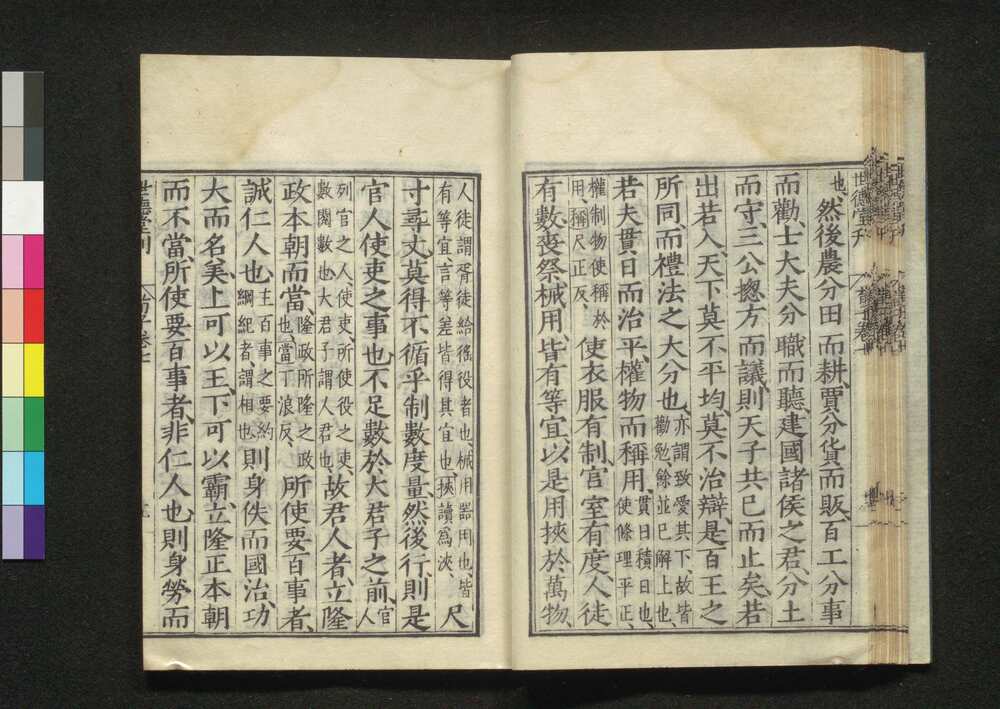 世德堂刊
也、然後農分田而耕、賈分貨而販、百工分事
而勸、士大夫分職而聽、建國諸侯之君、分土
而守、三公揔方而議、則天子共已而止矣、若
出若入、天下莫不平均、莫不治辯、是百王之
所同、而禮法之大分也、亦謂致愛其下、故皆勸勉、餘並已解上也、
若夫貫日而治平、權物而稱用、貫日、積日也、使條理平正、
權制物使稱於用、稱尺正反、使衣服有制、宮室有度、人徒
有數、喪祭械用、皆有等宜、以是用挾於萬物、
人徒謂胥徒給徭役者也、械用、器用也、皆有等宜、言等差皆得其宜也、挾讀爲浹、尺
寸尋丈、莫得不循乎制數度量、然後行、則是
官人使吏之事也、不足數於大君子之前、官人
列官之人、使吏、所使役之吏、數閱數也、大君子謂人君也、故君人者、立隆
政本朝而當、隆政所隆之政也、當丁浪反、所使要百事者、
誠仁人也、主百事之要約綱紀者、謂相也、則身佚而國治、功
大而名美、上可以王、下可以霸、立隆正本朝
而不當、所使要百事者、非仁人也、則身勞而
世德堂刊
荀子卷七